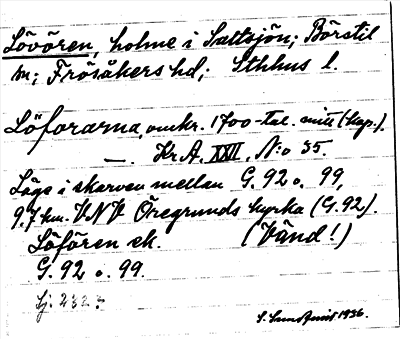 Lövören, holme i Sättsjön; Börstil
sn; Frösåkers hd; Sthlms l.
Löforarna, omkr. 1700-tal. mitt (kap.).
—. Kr. A. XXII, N:o 35.
Läge i skärven mellan G. 92 o. 99,
9.7 km. VNV Öregrunds kyrka (G. 92).
Löfören ek. (Vänd!)
G. 92 o. 99.
Lj. 232
S. Sundquist 1936.